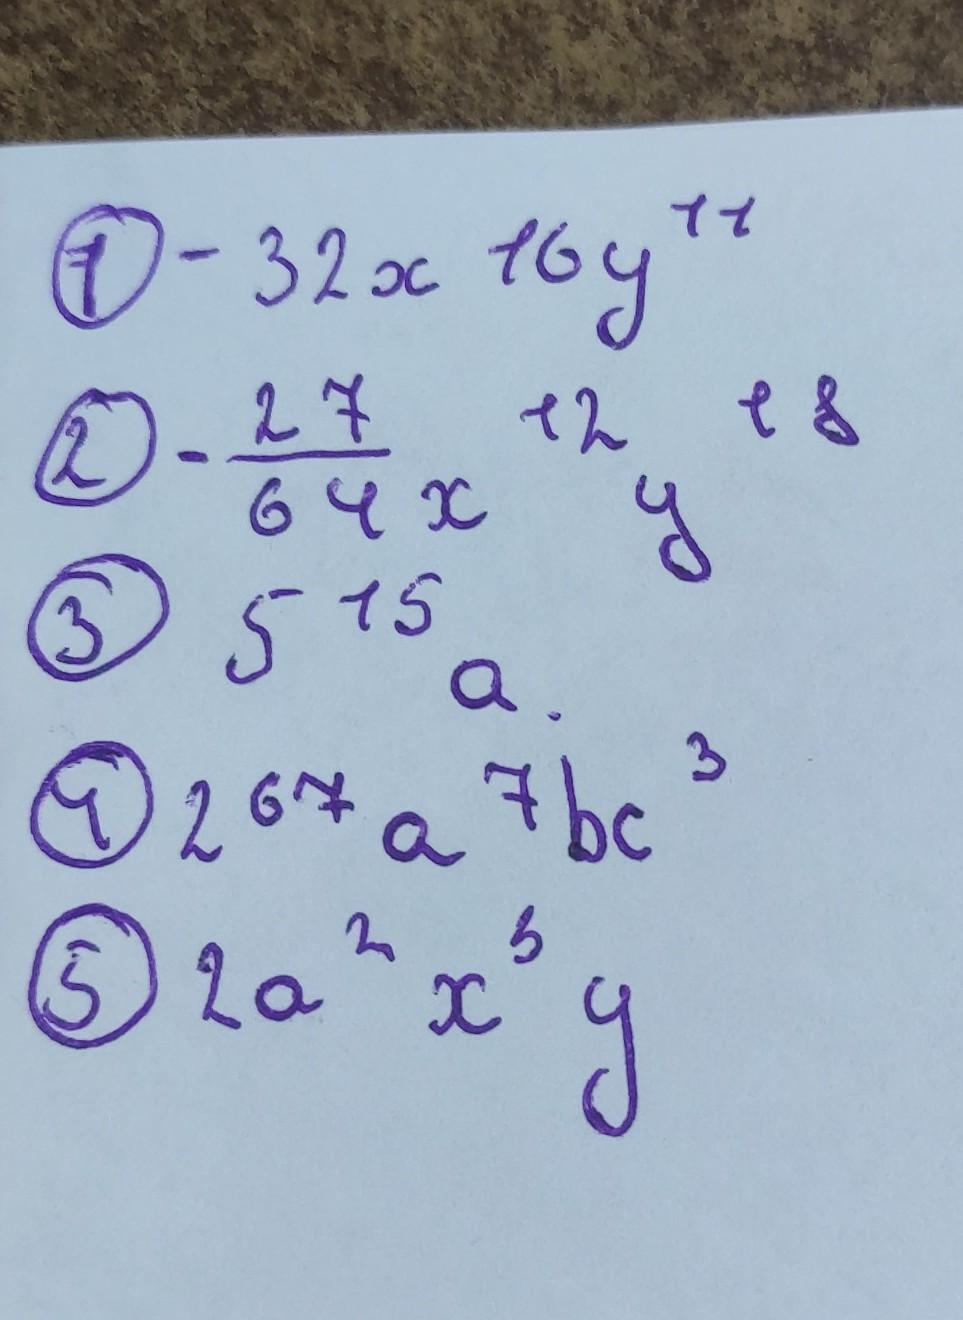 ① - 32x 16y¹¹
② - 27/64 x¹² y¹⁸
③ 5¹⁵ a.
④ 2⁶⁷ a⁷ bc³
⑤ 2a² x⁵ y